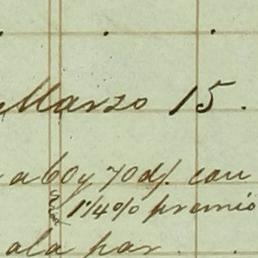 Marzo 15.
a 60 y 70 d/. con
1 1/4 % premio
a la par